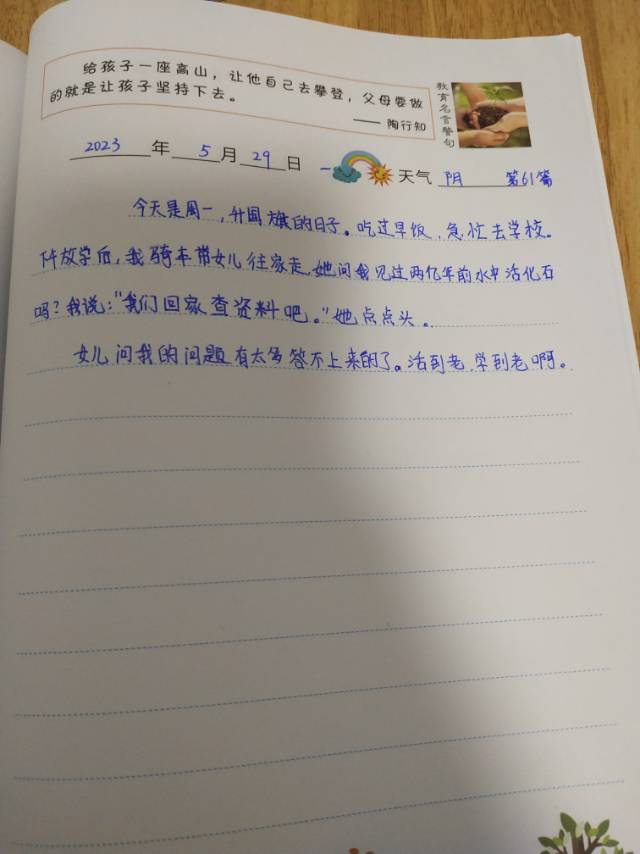 给孩子一座高山，让他自己去攀登，父母要做
的就是让孩子坚持下去。
—— 陶行知
教育名言警句
2023年5月29日 一 天气 阴 第61篇
今天是周一，升国旗的日子。吃过早饭，急忙去学校。
下午放学后，我骑车带女儿往家走，她问我见过两亿年前水中活化石
吗？我说："我们回家查资料吧。"她点点头。
女儿问我的问题有太多答不上来的了。活到老，学到老啊。